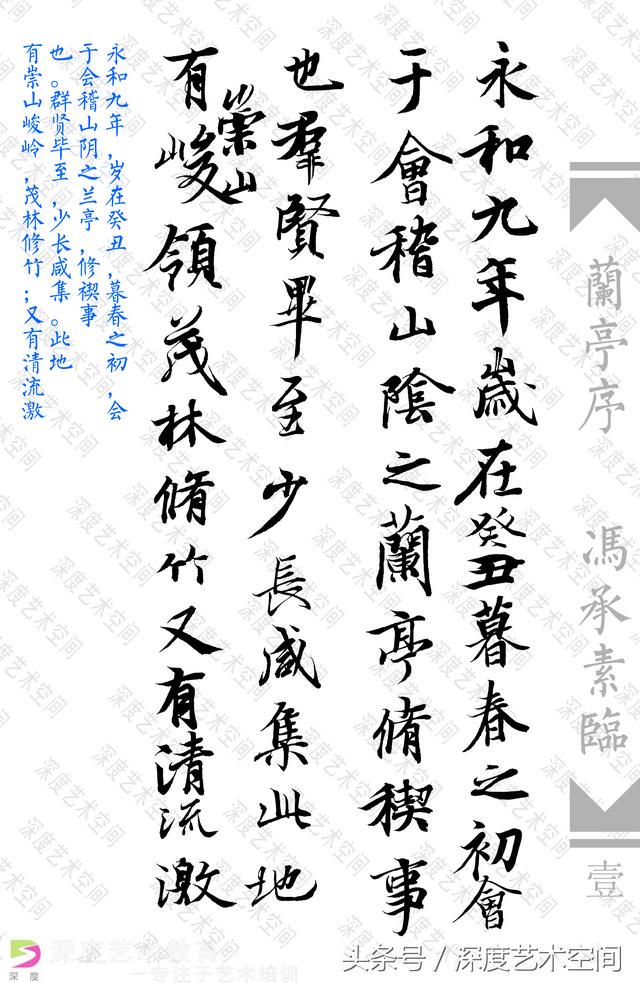 蘭亭序
馮承素臨
壹
永和九年歲在癸丑暮春之初會
于會稽山陰之蘭亭脩稧事
也羣賢畢至少長咸集此地
有崇山峻領茂林脩竹又有清流激
永和九年,岁在癸丑,暮春之初,会
于会稽山阴之兰亭,修禊事
也。群贤毕至,少长咸集。此地
有崇山峻岭,茂林修竹;又有清流激
深度艺术空间
深度
深度艺术教育
一专注于艺术培训
头条号 / 深度艺术空间